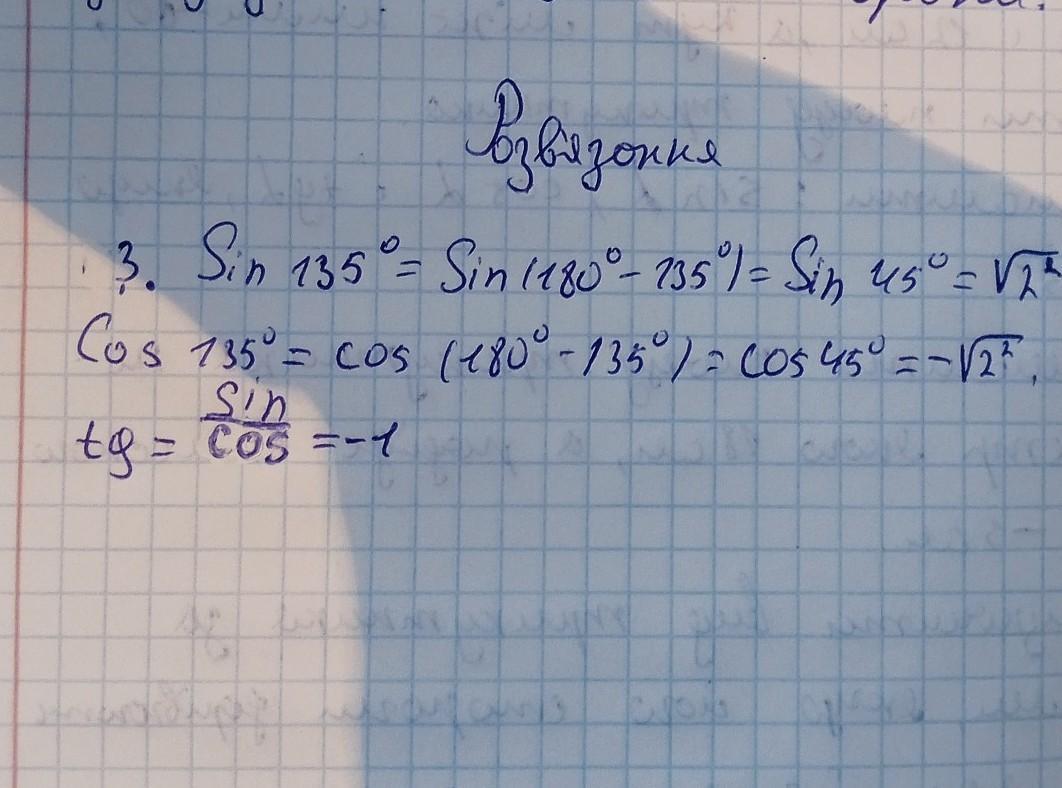 Розв'язоння
3. Sin 135° = Sin (180° - 135°) = Sin 45° = √2²
Cos 135° = cos (180° - 135°) = cos 45° = -√2².
tg = sin/cos = -1